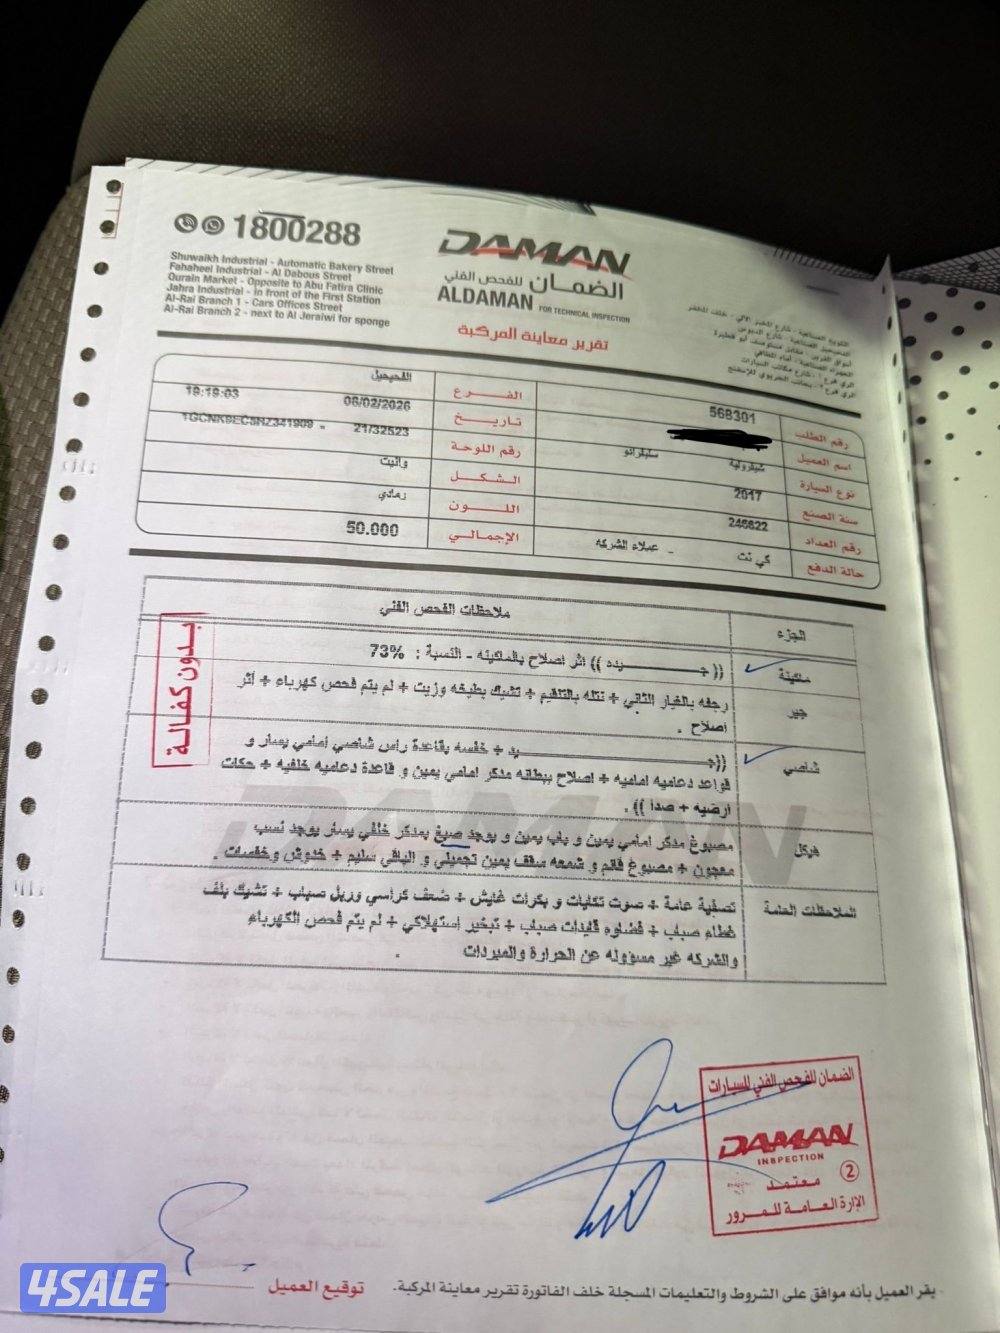 1800288
Shuwaikh Industrial - Automatic Bakery Street
Fahaheel Industrial - Al Dabous Street
Qurain Market - Opposite to Abu Fatira Clinic
Jahra Industrial - in front of the First Station
Al-Rai Branch 1 - Cars Offices Street
Al-Rai Branch 2 - next to Al Jeraiwi for sponge
DAMAN
الضمان للفحص الفني
ALDAMAN FOR TECHNICAL INSPECTION
تقرير معاينة المركبة
الشويخ الصناعية - شارع المخبز الآلي - خلف المخفر
الفحيحيل الصناعية - شارع الدبوس
أسواق القرين - مقابل مستوصف أبو فطيرة
الجهراء الصناعية - أمام المطافي
الري فرع ١ - شارع مكاتب السيارات
الري فرع ٢ - بجانب الجريوي للإسفنج
رقم الطلب 568301 الفـــرع الفحيحيل
اسم العميل تـاريـخ 06/02/2026 19:19:03
نوع السيارة شيفروليه سلفرادو رقم اللوحة 21/32523 - 1GCNK9EC5HZ341909
سنة الصنع 2017 الـشـكـل وانيت
رقم العداد 246822 اللـــون رمادي
حالة الدفع كي نت - عملاء الشركه الإجمالـي 50.000
الجزء ملاحظات الفحص الفني
ماكينة (( جـــــيده )) اثر اصلاح بالماكينه - النسبة : 73%
جير رجفه بالغيار الثاني + نتله بالتنقيم + تشيك بطيفه وزيت + لم يتم فحص كهرباء + أثر
اصلاح .
شاصي ((جـــــــيد + خفسه بقاعدة راس شاصي امامي يسار و
قواعد دعاميه اماميه + اصلاح ببطانه مدكر امامي يمين و قاعدة دعاميه خلفيه + حكات
ارضيه + صدا )) .
هيكل مصبوغ مدكر امامي يمين و باب يمين و يوجد صبغ بمدكر خلفي يسار يوجد نسب
معجون + مصبوغ قائم و شمعه سقف يمين تجميلي و الباقي سليم + خدوش وخفسات .
الملاحظات العامة تصفية عامة + صوت تكايات و بكرات قايش + ضعف كراسي وربل صباب + تشيك بلف
غطاء صباب + قضاوه قايدات صباب + تبخير إستهلاكي + لم يتم فحص الكهرباء
والشركه غير مسؤوله عن الحرارة والمبردات .
بـدون كفـالـة
الضمان للفحص الفني للسيارات
DAMAN
INSPECTION
معتمد 2
الإرادة العـامـة للمرور
يقر العميل بأنه موافق على الشروط والتعليمات المسجلة خلف الفاتورة تقرير معاينة المركبة. توقيع العميل
4SALE